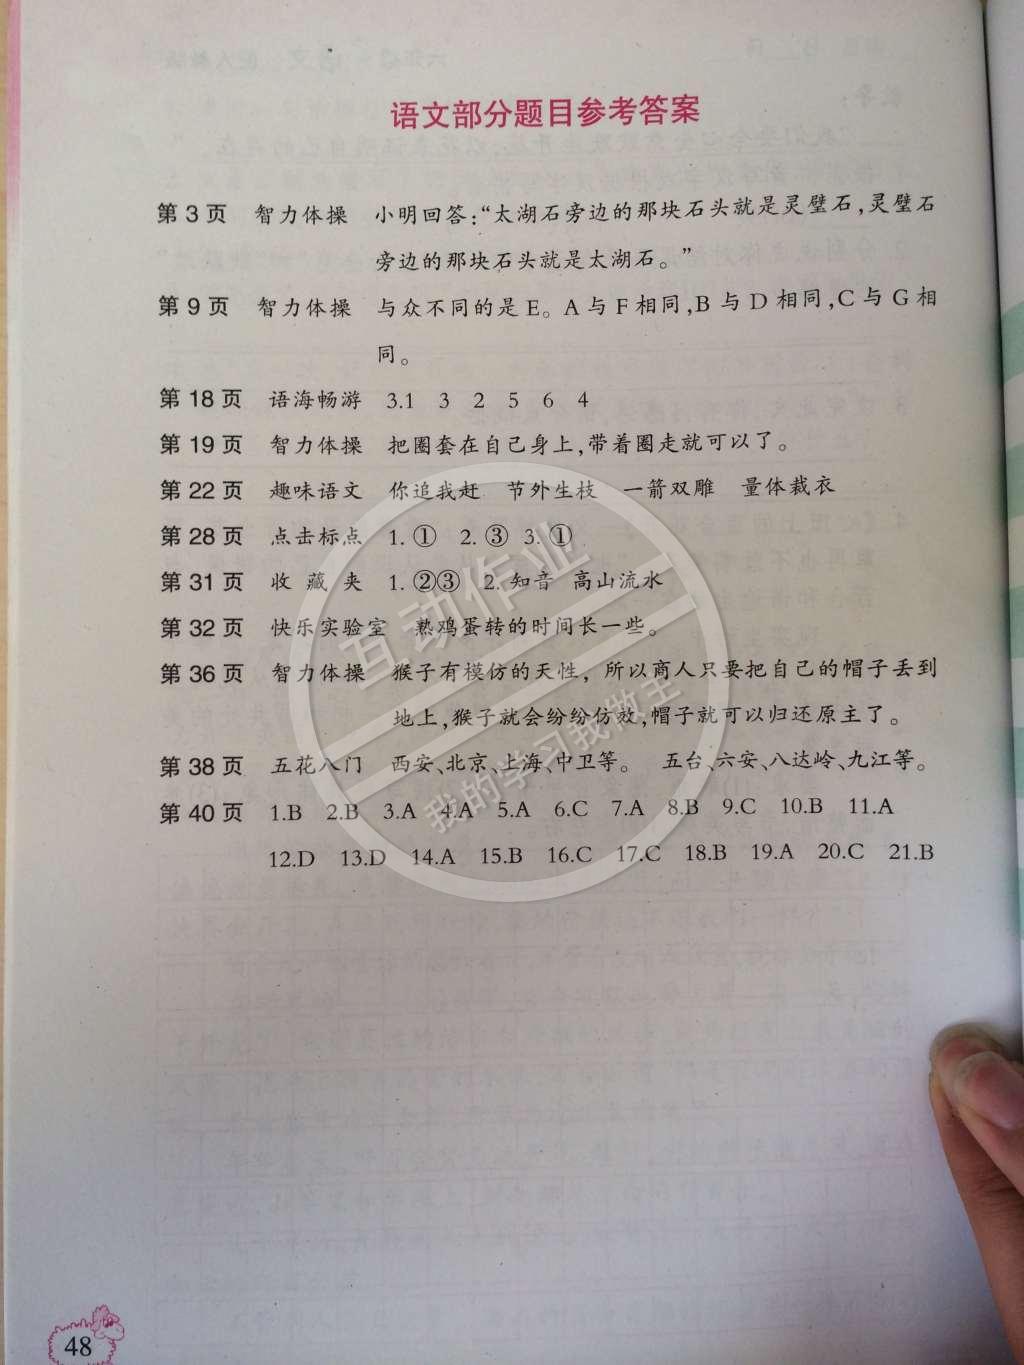 语文部分题目参考答案
第 3 页 智力体操 小明回答:“太湖石旁边的那块石头就是灵璧石,灵璧石
旁边的那块石头就是太湖石。”
第 9 页 智力体操 与众不同的是 E。A 与 F 相同,B 与 D 相同,C 与 G 相
同。
第 18 页 语海畅游 3.1 3 2 5 6 4
第 19 页 智力体操 把圈套在自己身上,带着圈走就可以了。
第 22 页 趣味语文 你追我赶 节外生枝 一箭双雕 量体裁衣
第 28 页 点击标点 1. ① 2. ③ 3. ①
第 31 页 收 藏 夹 1. ②③ 2. 知音 高山流水
第 32 页 快乐实验室 熟鸡蛋转的时间长一些。
第 36 页 智力体操 猴子有模仿的天性, 所以商人只要把自己的帽子丢到
地上,猴子就会纷纷仿效,帽子就可以归还原主了。
第 38 页 五花八门 西安、北京、上海、中卫等。 五台、六安、八达岭、九江等。
第 40 页 1.B 2.B 3.A 4.A 5.A 6.C 7.A 8.B 9.C 10.B 11.A
12.D 13.D 14.A 15.B 16.C 17.C 18.B 19.A 20.C 21.B
互动作业
我的学习我做主
48